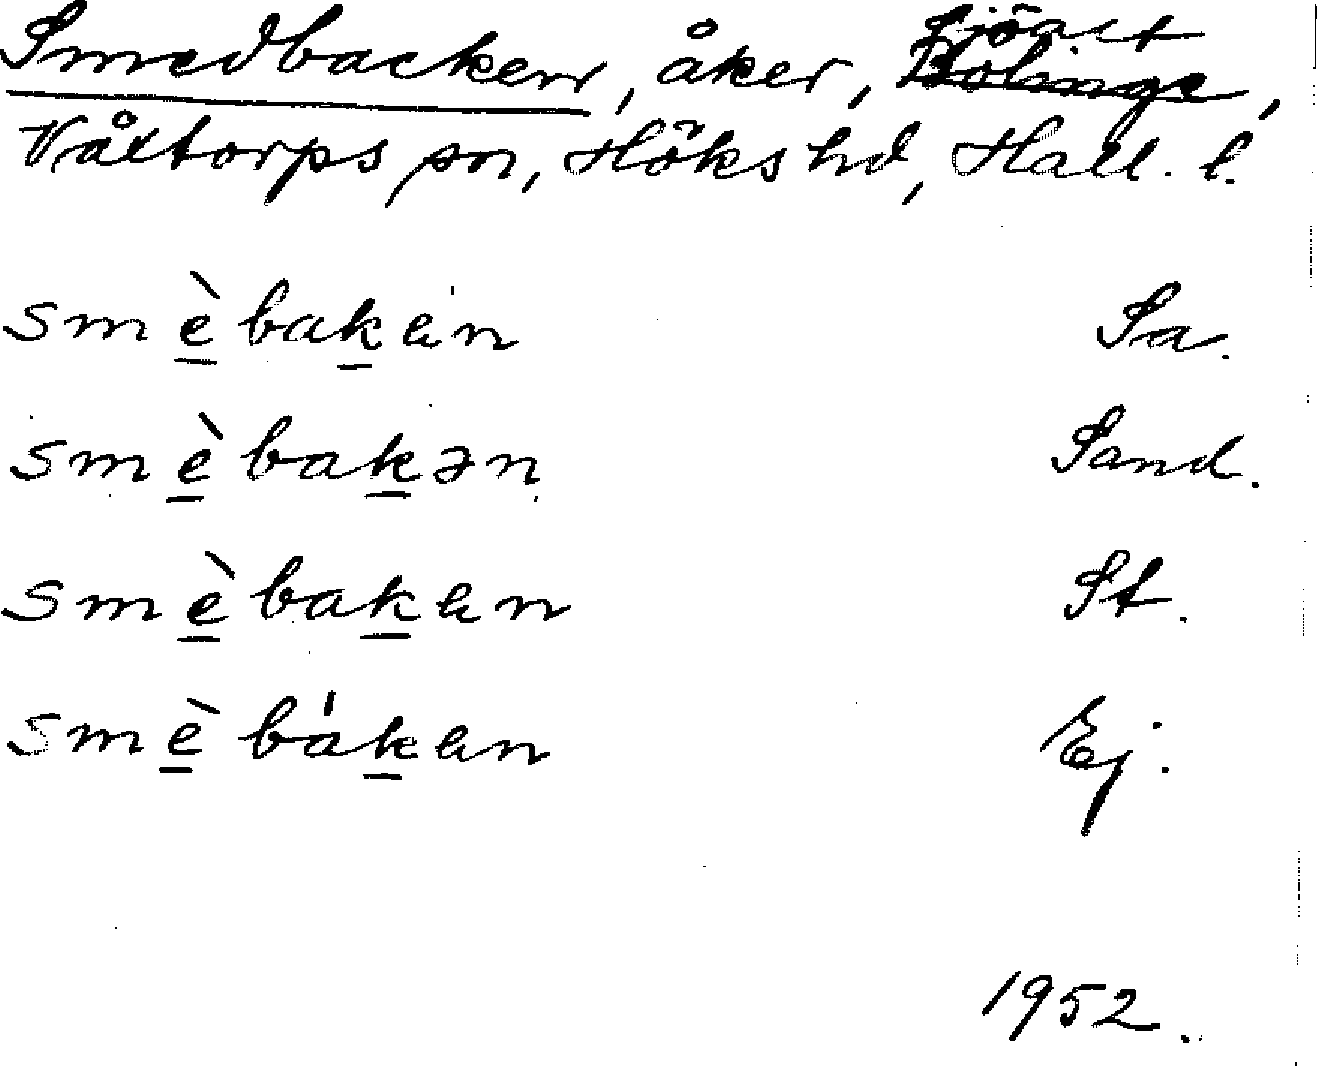 Smedbacken, åker, Sjöalt Bölinge,
Våxtorps sn, Höks hd, Hall. l.
smèbakän Sa.
smèbakən Sand.
smèbakän St.
smèbákän Ej.
1952.